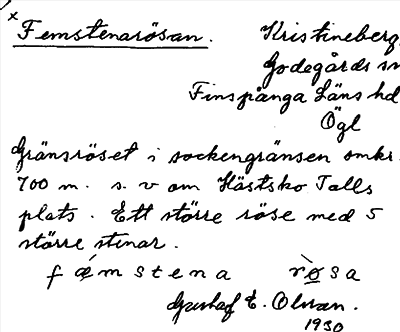 Femstenarösan. Kristineberg,
Godegårds sn
Finspånga Läns hd
Ögl
Gränsröset i sockengränsen omkr.
700 m. s. v om Hästsko Talls
plats. Ett större röse med 5
större stenar.
fæ´mstena rø`sa
Gustaf E. Olsson.
1930